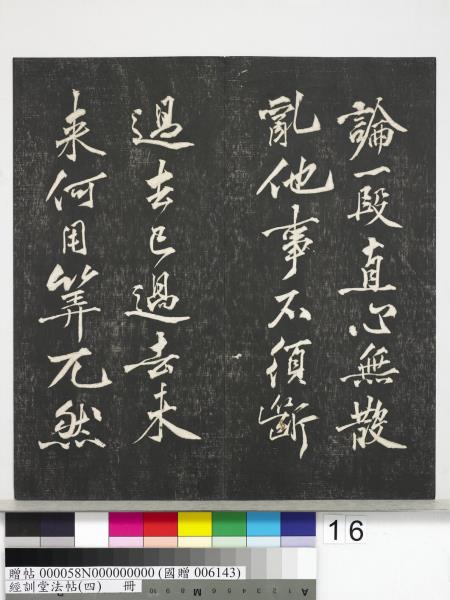 論一段直心無散
亂他事不須斷
過去已過去未
来何用筭兀然
16
贈帖 000058N000000000 (國贈 006143)
經訓堂法帖(四) 冊